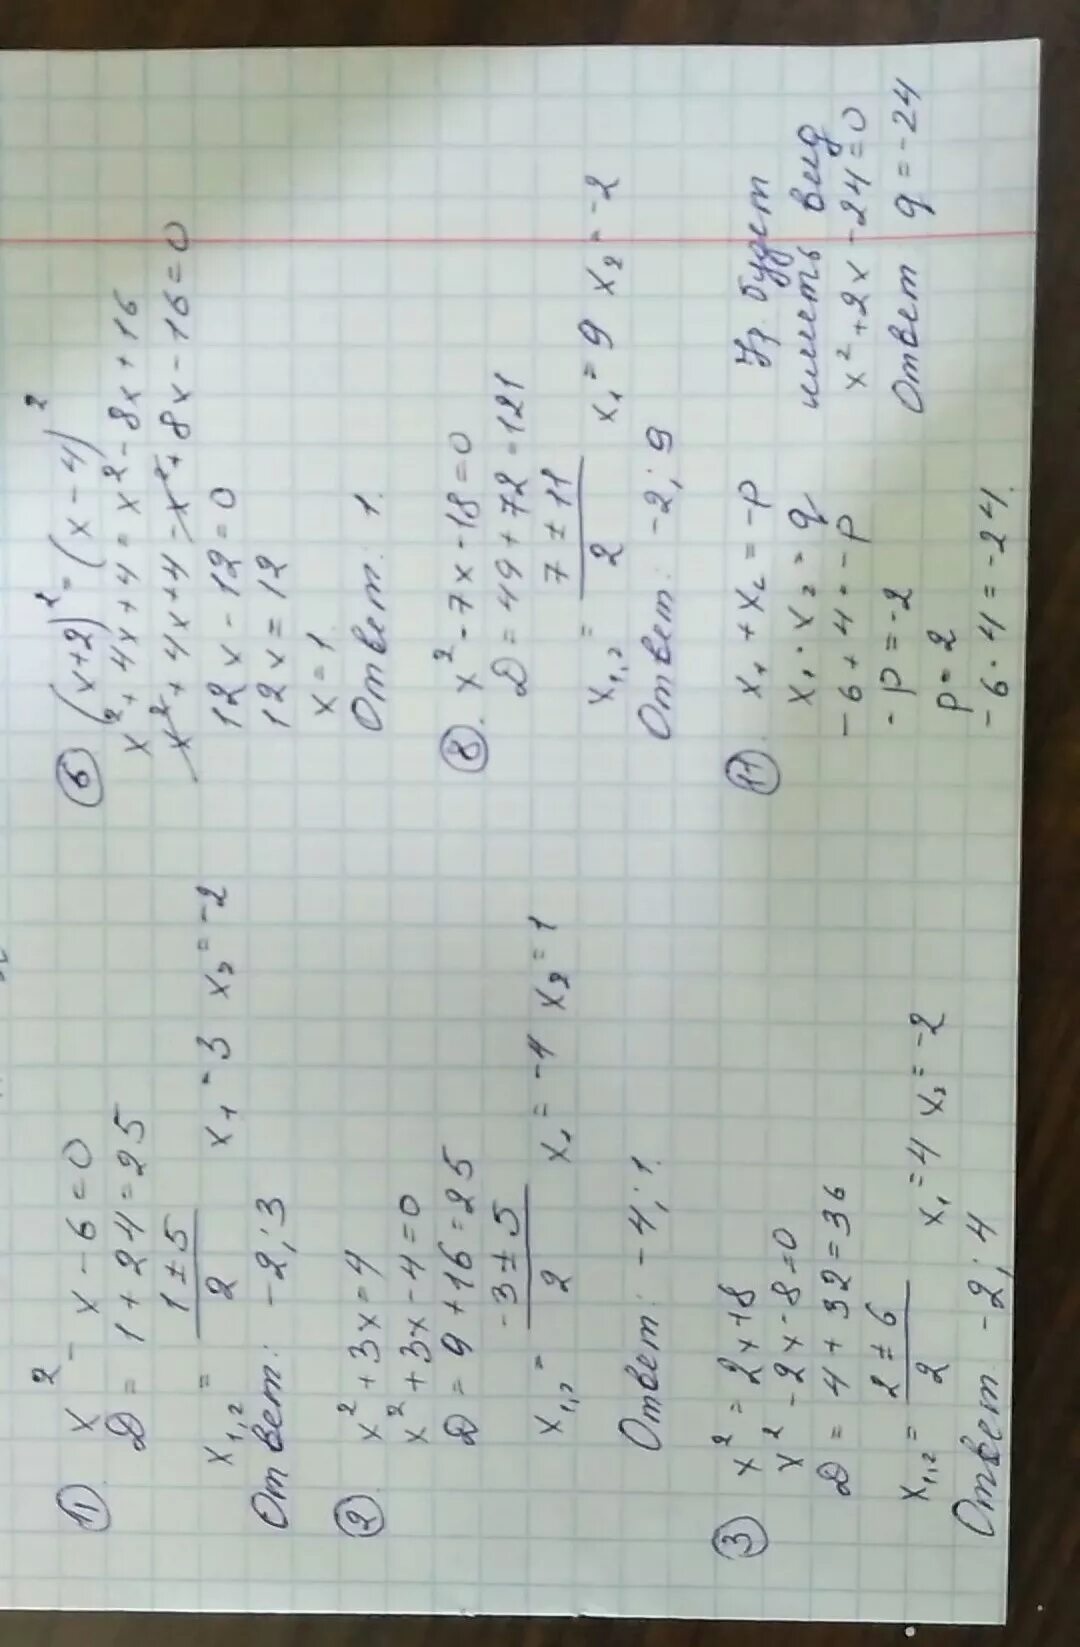 1) x² - x - 6 = 0
D = 1 + 24 = 25
x₁,₂ = (1 ± 5)/2 x₁ = 3 x₂ = -2
Ответ: -2; 3
2) x² + 3x = 4
x² + 3x - 4 = 0
D = 9 + 16 = 25
x₁,₂ = (-3 ± 5)/2 x₁ = -4 x₂ = 1
Ответ: -4; 1.
3) x² = 2x + 8
x² - 2x - 8 = 0
D = 4 + 32 = 36
x₁,₂ = (2 ± 6)/2 x₁ = 4 x₂ = -2
Ответ -2; 4
6) (x+2)² = (x - 4)²
x² + 4x + 4 = x² - 8x + 16
x² + 4x + 4 - x² + 8x - 16 = 0
12x - 12 = 0
12x = 12
x = 1.
Ответ: 1.
8). x² - 7x - 18 = 0
D = 49 + 72 = 121
x₁,₂ = (7 ± 11)/2 x₁ = 9 x₂ = -2
Ответ: -2; 9
11). x₁ + x₂ = -p
x₁ · x₂ = q
-6 + 4 = -p
-p = -2
p = 2
-6 · 4 = -24.
Ур. будет
иметь вид
x² + 2x - 24 = 0
Ответ q = -24